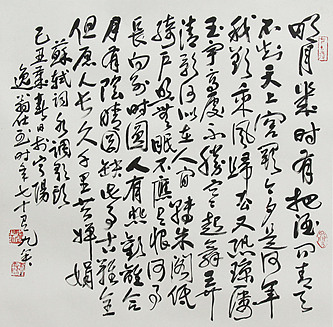 明月幾时有把酒问青天
不知天上宫闕今夕是何年
我欲乘风归去又恐琼楼
玉宇高處不勝寒起舞弄
清影何似在人间轉朱阁低
绮户照無眠不應有恨何事
长向别时圆人有悲歡離合
月有陰晴圆缺此事古難全
但願人长久千里共嬋娟
蘇轼词水调歌头
己丑春日於宁陽
逸翁时年七十又九書